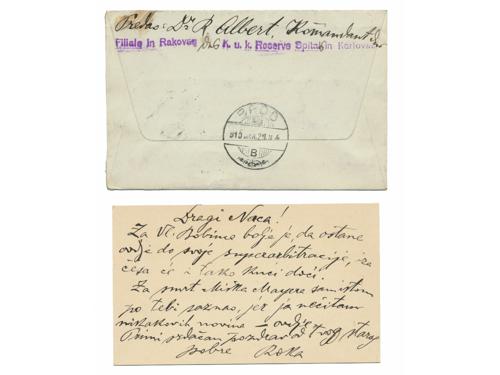 Predao: Dr R. Albert, Komandant der
Filiale in Rakovac des K. u. k. Reserve Spital in Karlovac
BROD
B
Dragi Naca!
Za Vl. bolje je, da ostane
ovdje do svoje superarbitracije, iza
čega će i tako kući doći.
Za smrt Mirka Mayera sam istom
po tebi saznao, jer ja nečitam
nikakovih novina – ovdje
Primi srdačan pozdrav od tvog starog
pobre Roka